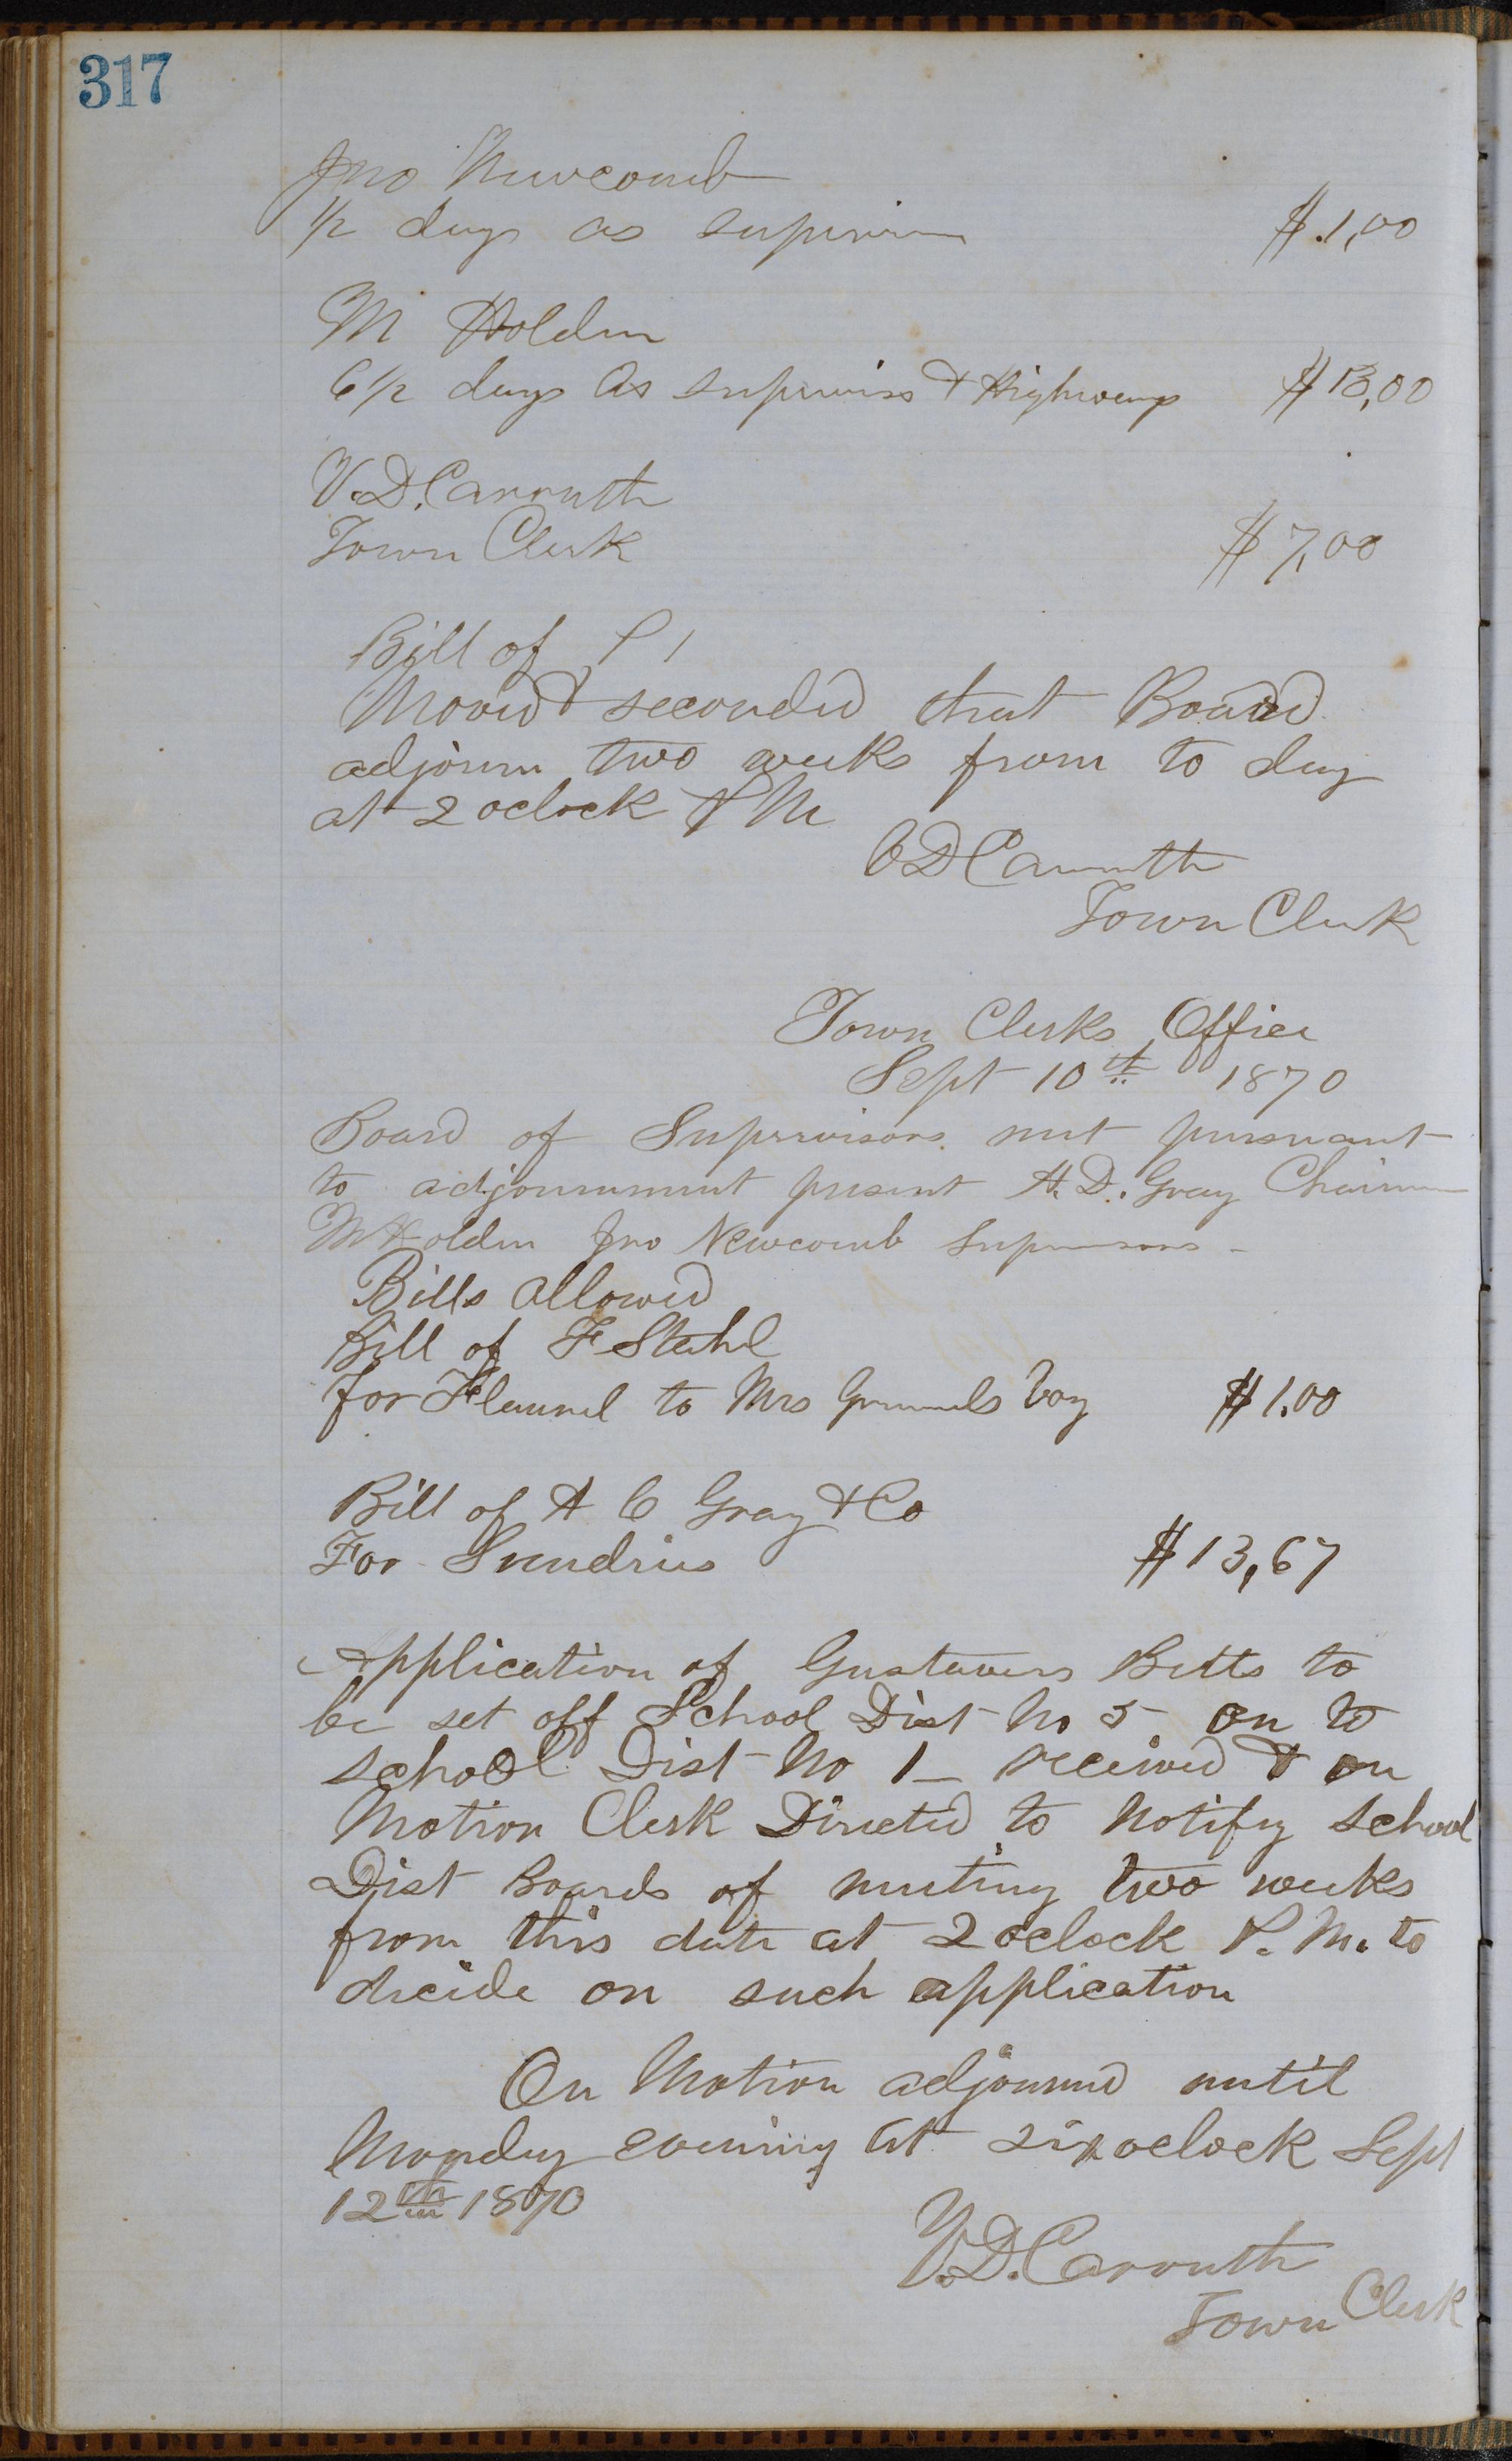 317
Jno Newcomb
1/2 days as supervisor $1,00
M Holden
6 1/2 days As supervisor & Highways $13,00
V.D. Carruth
Town Clerk $7,00
Bill of
Moved & seconded that Board
adjourn two weeks from to day
at 2 oclock P M
V D Carruth
Town Clerk
Town Clerks Office
Sept 10th 1870
Board of Supervisors met pursuant
to adjournment present H. D. Gray Chairman
M Holden Jno Newcomb Supervisors -
Bills allowed
Bill of F Stahl
for Flannel to Mrs boy $1.00
Bill of A C Gray & Co
For Sundries $13,67
Application of Gustavus Betts to
be set off School Dist No 5 on to
school Dist No 1 - received & on
Motion Clerk Directed to Notify School
Dist Boards of meeting two weeks
from this date at 2 oclock P. M. to
decide on such application
On Motion adjourned until
Monday evening at six oclock Sept
12th 1870
V. D. Carruth
Town Clerk